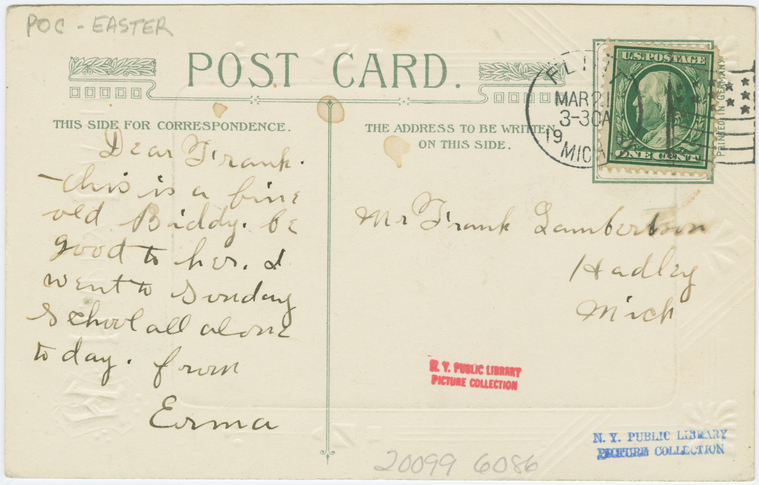 POC - EASTER
POST CARD.
THIS SIDE FOR CORRESPONDENCE.
THE ADDRESS TO BE WRITTEN
ON THIS SIDE.
Dear Frank.
this is a fine
old Biddy. be
good to her. I
went to Sunday
School all alone
to day. from
Erma
Mr Frank Lambertson
Hadley
Mich
FLINT
MAR 21
3-30A
19
MICH
U.S. POSTAGE
ONE CENT
PRINTED IN GERMANY
N. Y. PUBLIC LIBRARY
PICTURE COLLECTION
N. Y. PUBLIC LIBRARY
PICTURE COLLECTION
20099 6086